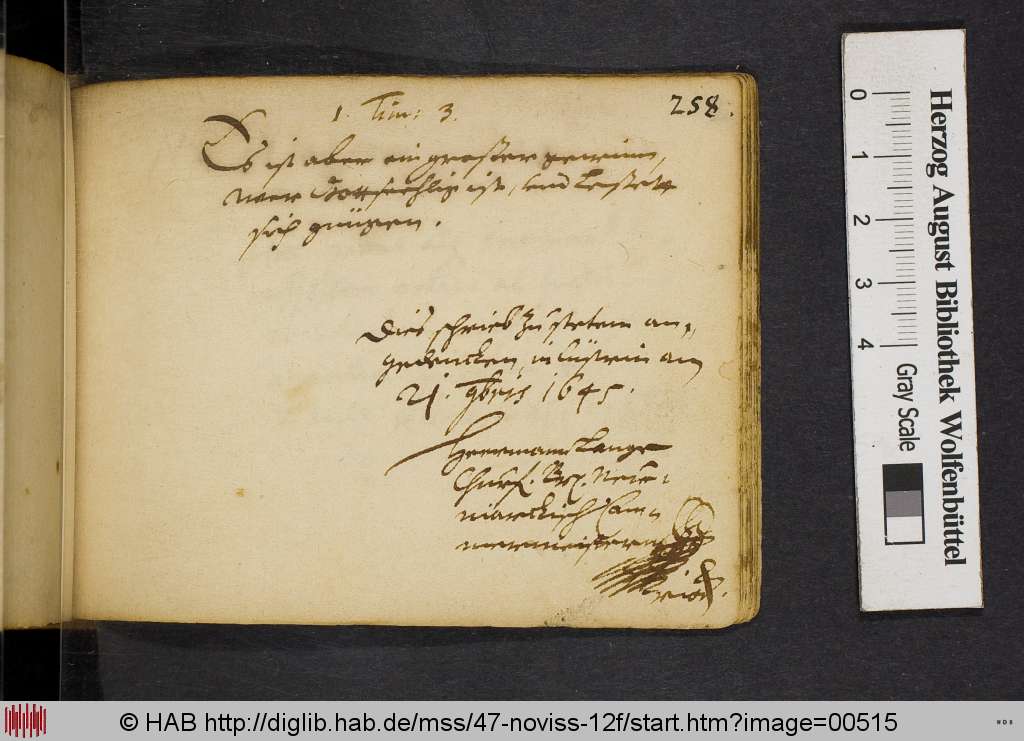 1. Tim: 3.
258.
Es ist aber ein großer gewinn,
wer Gottseehlig ist, und lesset
sich gnügen.
Dies schrieb zu stetem an=
gedencken, in Cüstrin am
21. 9bris 1645.
Herman Lange
Churf. Br. Neu=
märckisch Cam=
mermeister
0 1 2 3 4
Herzog August Bibliothek Wolfenbüttel
Gray Scale
© HAB http://diglib.hab.de/mss/47-noviss-12f/start.htm?image=00515